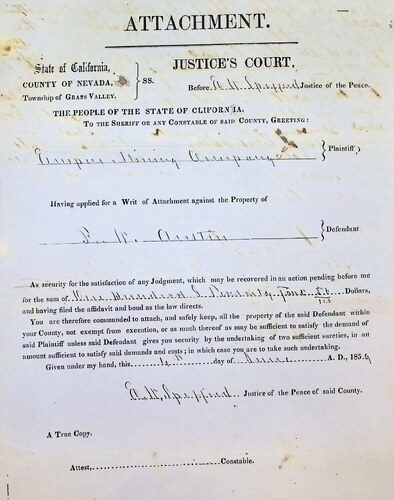 ATTACHMENT.
State of California,
COUNTY OF NEVADA,
Township of GRASS VALLEY.
SS.
JUSTICE'S COURT,
Before Justice of the Peace.
THE PEOPLE OF THE STATE OF CLIFORNIA.
TO THE SHERIFF OR ANY CONSTABLE OF SAID COUNTY, GREETING:
Empire Mining Company Plaintiff
Having applied for a Writ of Attachment against the Property of
Defendant
As security for the satisfaction of any Judgment, which may be recovered in an action pending before me
for the sum of Nine Hundred & Dollars,
and having filed the affidavit and bond as the law directs.
You are therefore commanded to attach, and safely keep, all the property of the said Defendant within
your County, not exempt from execution, or as much thereof as may be sufficient to satisfy the demand of
said Plaintiff unless said Defendant gives you security by the undertaking of two sufficient sureties, in an
amount sufficient to satisfy said demands and costs; in which case you are to take such undertaking.
Given under my hand, this day of June A. D., 185
Justice of the Peace of said County.
A True Copy.
Attest, Constable.